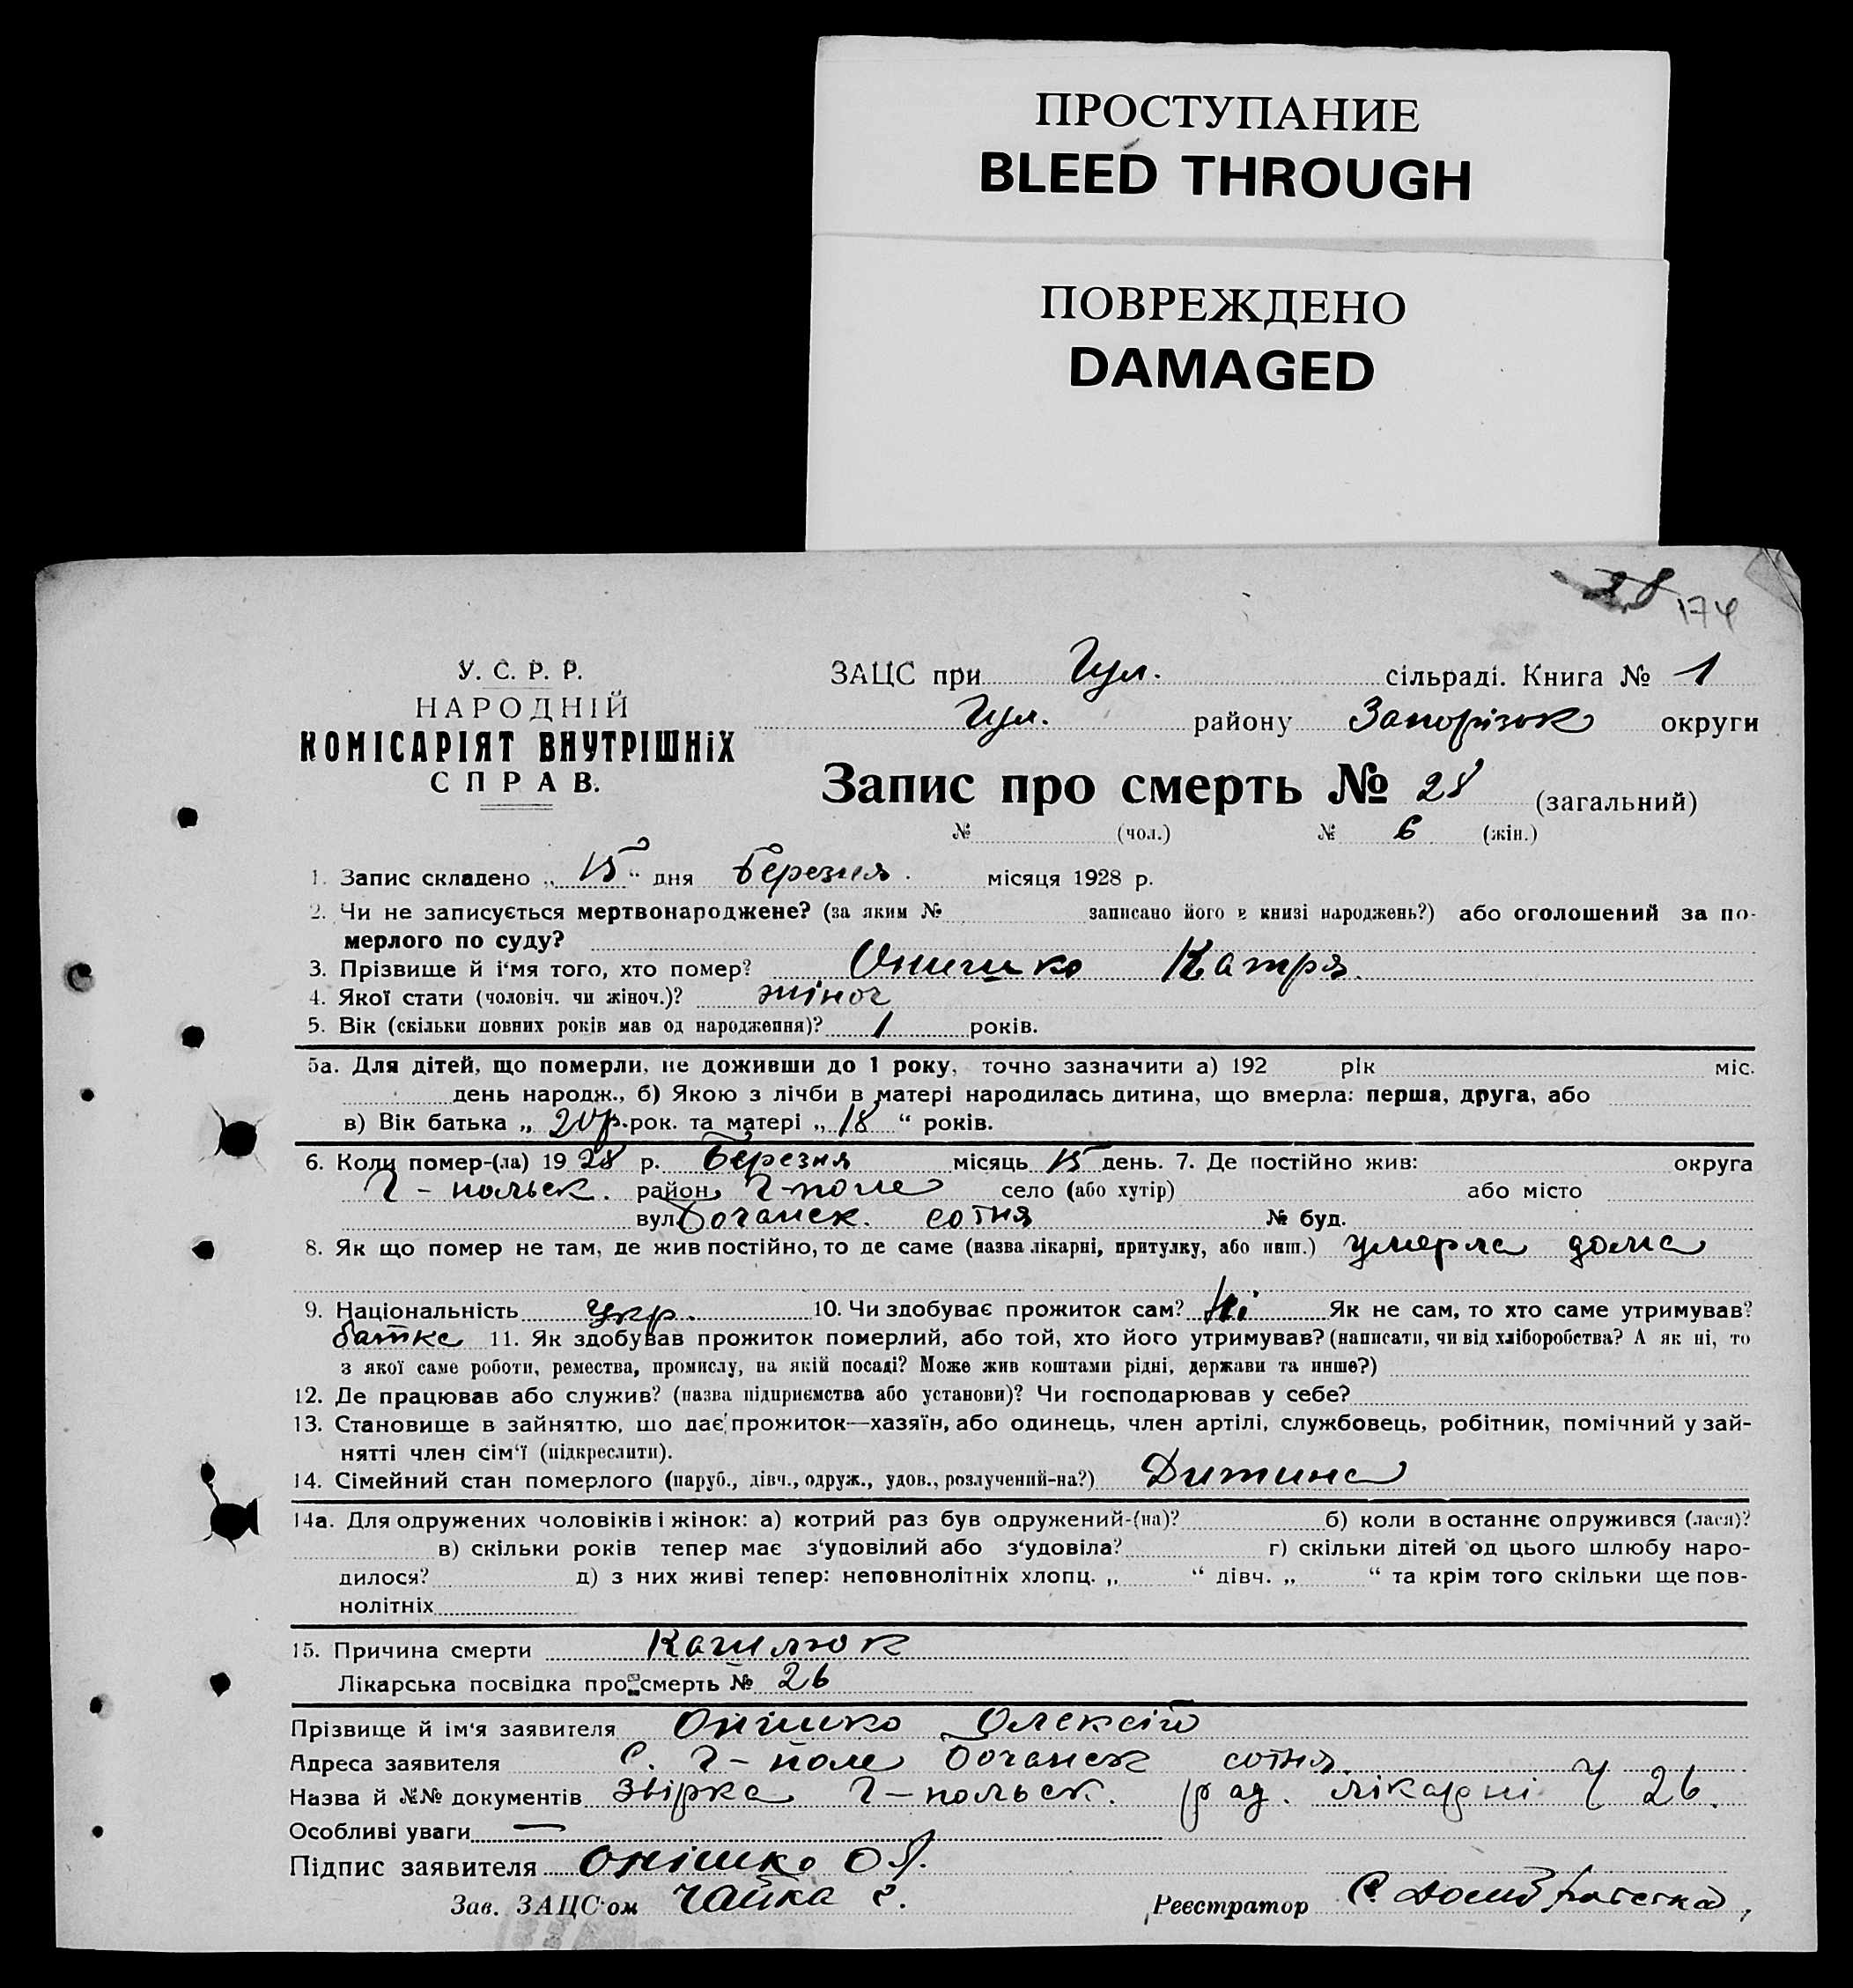 ПРОСТУПАНИЕ
BLEED THROUGH
ПОВРЕЖДЕНО
DAMAGED
28 174
У. С. Р. Р.
НАРОДНІЙ
КОМІСАРІЯТ ВНУТРІШНіХ
СПРАВ.
ЗАЦС при Гул. сільраді. Книга № 1
Гул. району Запорізьк округи
Запис про смерть № 28 (загальний)
№ (чол.) № 6 (жін.)
1. Запис складено „ 15 “ дня Березня. місяця 1928 р.
2. Чи не записується мертвонароджене? (за яким № записано його в книзі народжень?) або оголошений за по-
мерлого по суду?
3. Прізвище й і'мя того, хто помер? Онишко Катря.
4. Якої стати (чоловіч. чи жіноч.)? жіноч
5. Вік (скільки повних років мав од народження)? 1 років.
5а. Для дітей, що померли, не доживши до 1 року, точно зазначити а) 192 рік міс.
день народж., б) Якою з лічби в матері народилась дитина, що вмерла: перша, друга, або
в) Вік батька „ 20 р. рок. та матері „ 18 “ років.
6. Коли помер-(ла) 19 28 р. Березня місяць 15 день. 7. Де постійно жив: округа
Г-польск. район, Г-поле село (або хутір) або місто
вул. Бочанск. сотня № буд.
8. Як що помер не там, де жив постійно, то де саме (назва лікарні, притулку, або инш.) умерла дома
9. Національність укр. 10. Чи здобуває прожиток сам? Ні Як не сам, то хто саме утримував?
батько 11. Як здобував прожиток померлий, або той, хто його утримував? (написати, чи від хліборобства? А як ні, то
з якої саме роботи, ремества, промислу, на якій посаді? Може жив коштами рідні, держави та инше?)
12. Де працював або служив? (назва підприємства або установи)? Чи господарював у себе?
13. Становище в зайняттю, що дає прожиток—хазяїн, або одинець, член артілі, службовець, робітник, помічний у зай-
нятті член сім'ї (підкреслити).
14. Сімейний стан померлого (паруб., дівч., одруж., удов., розлучений-на?) Дитина
14а. Для одружених чоловіків і жінок: а) котрий раз був одружений-(на)? б) коли в останнє одружився (лася)?
в) скільки років тепер має з'удовілий або з'удовіла? г) скільки дітей од цього шлюбу наро-
дилося? д) з них живі тепер: неповнолітніх хлопц. „ “ дівч. „ “ та крім того скільки ще пов-
нолітніх
15. Причина смерти Кашлюк
Лікарська посвідка про смерть № 26
Прізвище й ім'я заявителя Онішко Олексій
Адреса заявителя с. Г-поле Бочанск сотня.
Назва й №№ документів Звірка Г-польск. рад. лікарні Ч 26.
Особливі уваги —
Підпис заявителя Онішко О Я.
Зав. ЗАЦС'ом Чайка Г. Реєстратор